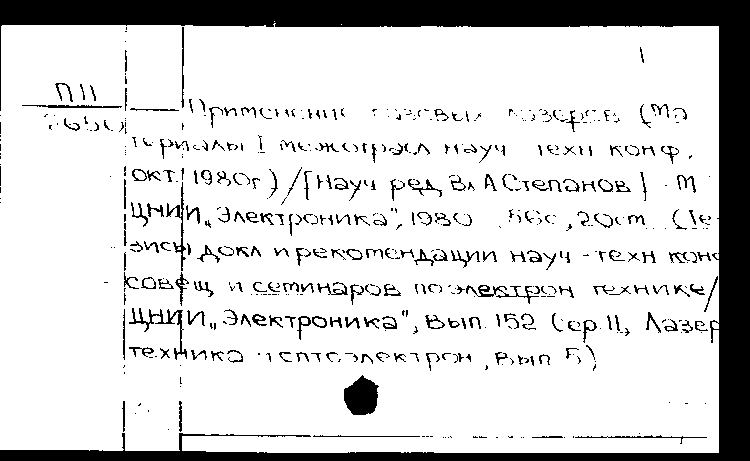 П11
7650
Применение газовых лазеров (Ма
териалы I межотрасл науч техн конф.
окт. 1980г) / [Науч ред Вл А Степанов] М
ЦНИИ „Электроника", 1980 56с, 20cm (Те-
зисы докл и рекомендации науч - техн кон
совещ и семинаров по электрон технике/
ЦНИИ „Электроника", вып. 152 (сер. 11, Лазер
техника оптоэлектрон, вып 5)